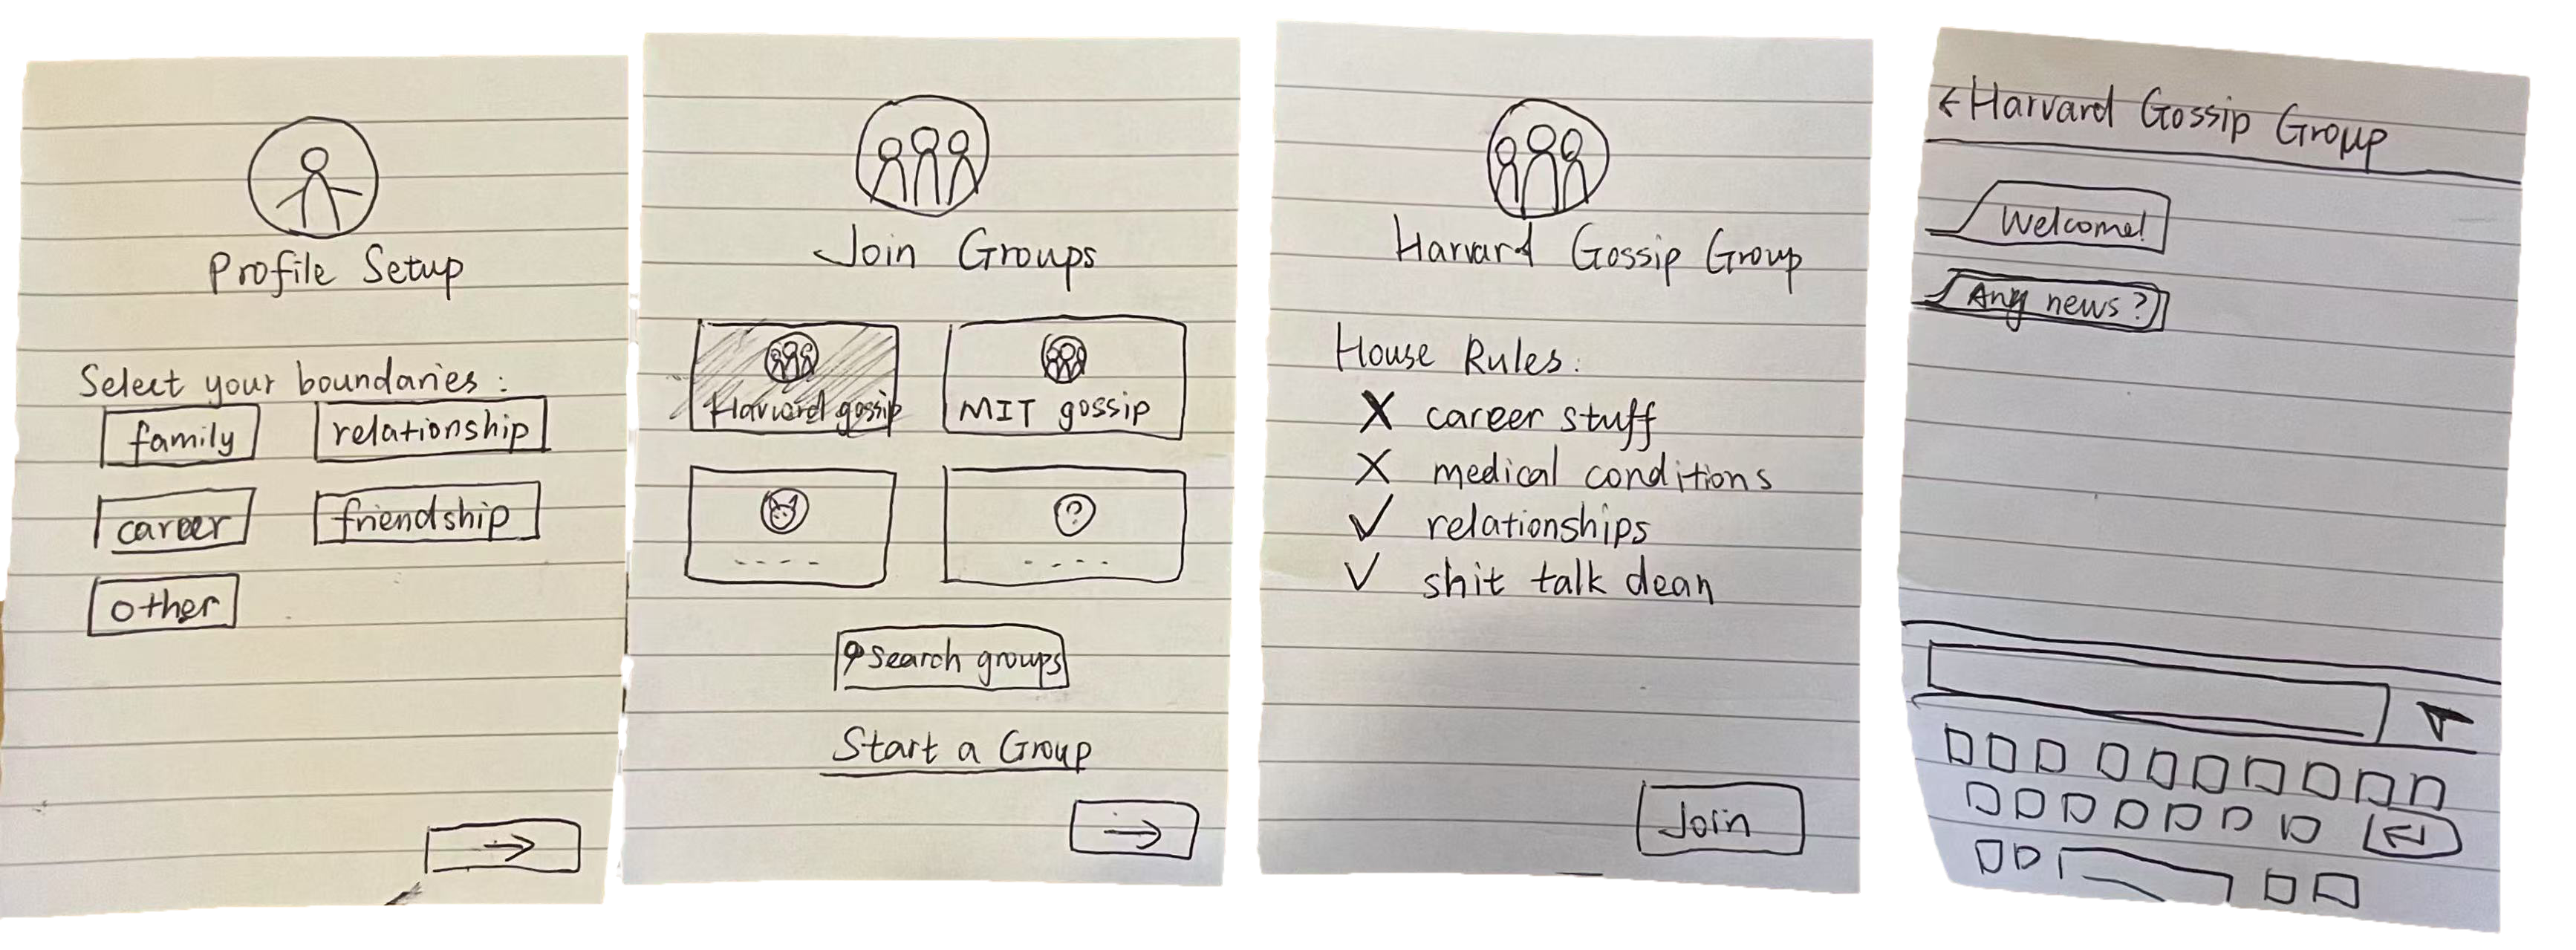 Profile Setup
Select your boundaries:
family
relationship
career
friendship
other
→
Join Groups
Harvard gossip
MIT gossip
?
Search groups
Start a Group
→
Harvard Gossip Group
House Rules:
X career stuff
X medical conditions
✓ relationships
✓ shit talk dean
Join
← Harvard Gossip Group
Welcome!
Any news?